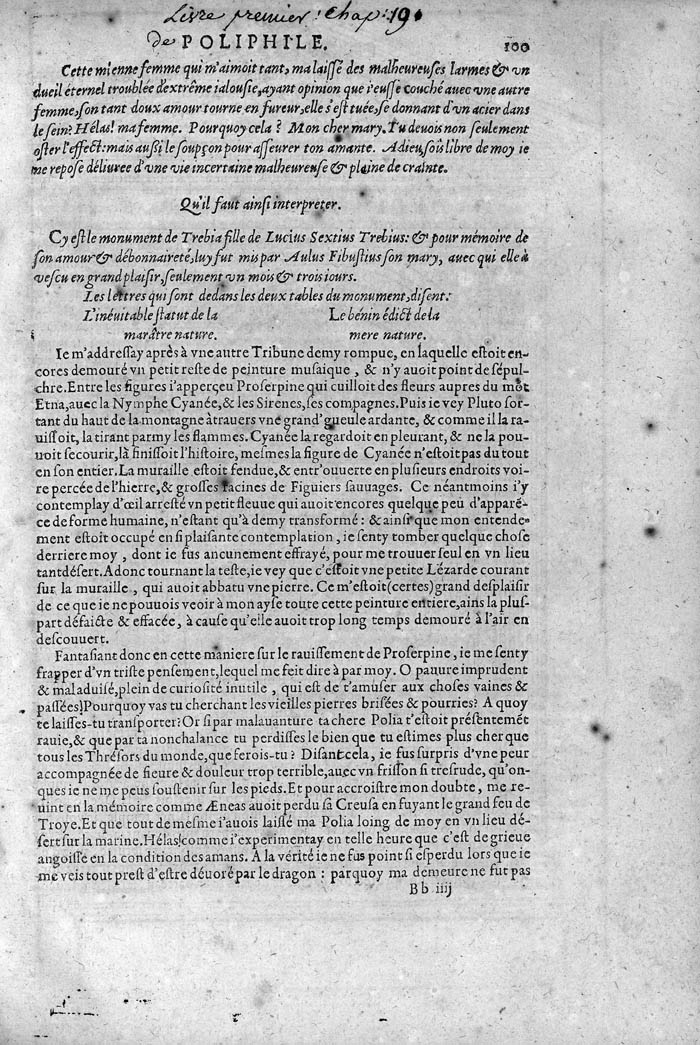 Livre premier: Chap: 19.
de POLIPHILE. 100
Cette mienne femme qui m'aimoit tant, ma laissé des malheureuses larmes & vn
dueil éternel troublée d'extréme ialousie, ayant opinion que i'eusse couché auec vne autre
femme, son tant doux amour tourne en fureur, elle s'est tuée, se donnant d'vn acier dans
le sein? Hélas! ma femme. Pourquoy cela ? Mon cher mary. Tu deuois non seulement
oster l'effect: mais aussi le soupçon pour asseurer ton amante. Adieu, sois libre de moy ie
me repose déliuree d'vne vie incertaine malheureuse & plaine de crainte.
Qu'il faut ainsi interpreter.
Cy est le monument de Trebia fille de Lucius Sextius Trebius: & pour mémoire de
son amour & débonnaireté, luy fut mis par Aulus Fibustius son mary, auec qui elle à
vescu en grand plaisir, seulement vn mois & trois iours.
Les lettres qui sont dedans les deux tables du monument, disent:
L'inéuitable statut de la Le bénin édict de la
marâtre nature. mere nature.
Ie m'addressay après à vne autre Tribune demy rompue, en laquelle estoit en-
cores demouré vn petit reste de peinture musaique , & n'y auoit point de sépul-
chre. Entre les figures i'apperçeu Proserpine qui cuilloit des fleurs aupres du mõt
Etna, auec la Nymphe Cyanée, & les Sirenes, ses compagnes. Puis ie vey Pluto sor-
tant du haut de la montagne à trauers vne grand' gueule ardante, & comme il la ra-
uissoit, la tirant parmy les flammes. Cyanée la regardoit en pleurant, & ne la pou-
uoit secourir, là finissoit l'histoire, mesmes la figure de Cyanée n'estoit pas du tout
en son entier. La muraille estoit fendue, & entr'ouuerte en plusieurs endroits voi-
re percée de l'hierre, & grosses racines de Figuiers sauuages. Ce néantmoins i'y
contemplay d'œil arresté vn petit fleuue qui auoit encores quelque peu d'apparẽ-
ce de forme humaine, n'estant qu'à demy transformé : & ainsi que mon entende-
ment estoit occupé en si plaisante contemplation , ie senty tomber quelque chose
derriere moy , dont ie fus ancunement effrayé, pour me trouuer seul en vn lieu
tant désert. Adonc tournant la teste, ie vey que c'estoit vne petite Lézarde courant
sur la muraille , qui auoit abbatu vne pierre. Ce m'estoit (certes) grand desplaisir
de ce que ie ne pouuois veoir à mon ayse toute cette peinture entiere, ains la plus-
part défaicte & effacée, à cause qu'elle auoit trop long temps demouré à l'air en
descouuert.
Fantasiant donc en cette maniere sur le rauissement de Proserpine, ie me senty
frapper d'vn triste pensement, lequel me feit dire à par moy. O pauure imprudent
& mal aduisé, plein de curiosité inutile , qui est de t'amuser aux choses vaines &
passées! Pourquoy vas tu cherchant les vieilles pierres brisées & pourries? A quoy
te laisses-tu transporter? Or si par malauanture ta chere Polia t'estoit présentemẽt
rauie, & que par ta nonchalance tu perdisses le bien que tu estimes plus cher que
tous les Thrésors du monde, que ferois-tu ? Disant cela, ie fus surpris d'vne peur
accompagnée de fieure & douleur trop terrible, auec vn frisson si tresrude, qu'on-
ques ie ne me peus soustenir sur les pieds. Et pour accroistre mon doubte, me re-
uint en la mémoire comme Æneas auoit perdu sa Creusa en fuyant le grand feu de
Troye. Et que tout de mesme i'auois laissé ma Polia loing de moy en vn lieu dé-
sert sur la marine. Hélas! comme i'experimentay en telle heure que c'est de grieue
angoisse en la condition des amans. A la vérité ie ne fus point si esperdu lors que ie
me veis tout prest d'estre déuoré par le dragon : parquoy ma demeure ne fut pas
Bb iiij